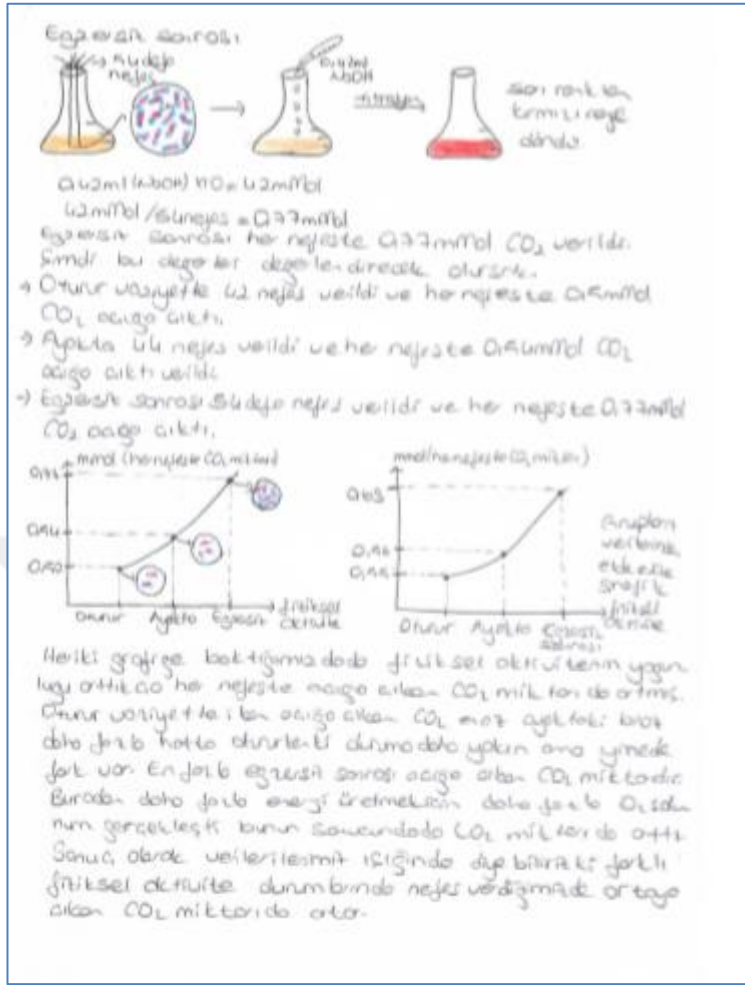 Egzersiz sonrası
54 defa
nefes
0,42ml
NaOH
titrasyon
sarı renkten
kırmızı renge
döndü.
0,42ml (NaOH) x10 = 42mMol
42mMol / 54nefes = 0,77mMol
Egzersiz sonrası her nefeste 0,77mMol CO₂ verildi.
Şimdi bu değerler değerlendirecek olursak.
→ Oturur vaziyette 42 nefes verildi ve her nefeste 0,5mMol
CO₂ açığa çıktı.
→ Ayakta 44 nefes verildi ve her nefeste 0,54mMol CO₂
açığa çıktı verildi.
→ Egzersiz sonrası 54 defa nefes verildi ve her nefeste 0,77mMol
CO₂ açığa çıktı.
mmol (her nefeste CO₂ miktarı)
0,77
0,54
0,50
Oturur Ayakta Egzersiz
fiziksel
aktivite
mmol (her nefeste CO₂ miktarı)
0,63
0,56
0,55
Oturur Ayakta Egzersiz
sonrası
fiziksel
aktivite
Grupların
verilerini
elde edilen
grafik
Her iki grafiğe baktığımızda da fiziksel aktivitenin yoğun
luğu arttıkça her nefeste açığa çıkan CO₂ miktarı da artmış.
Oturur vaziyette iken açığa çıkan CO₂ en az ayaktaki biraz
daha fazla hatta oturur durumdakine yakın ama yine de
fark var. En fazla egzersiz sonrası açığa çıkan CO₂ miktarıdır.
Buradan daha fazla enerji üretmek için daha fazla O₂ solu
num gerçekleşti bunun sonucunda da CO₂ miktarı da arttı.
Sonuç olarak verilerimiz ışığında diyebiliriz ki farklı
fiziksel aktivite durumlarında nefes verdiğimizde ortaya
çıkan CO₂ miktarı da artar.